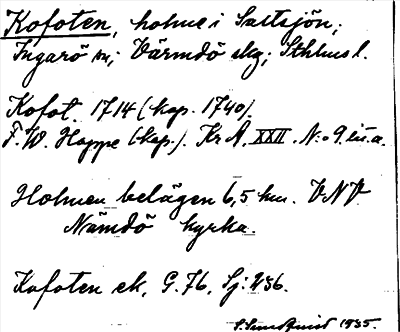 Kofoten, holme i Saltsjön;
Ingarö sn; Värmdö skg; Sthlms l.
Kofot. 1714 (kop. 1740).
F. W. Hoppe (kop.). Kr A. XXII. N:o 9. lit. a.
Holmen belägen 6,5 km. VNV
Nämdö kyrka.
Kofoten ek, G. 76, Sj: 236.
S. Sundquist 1935.